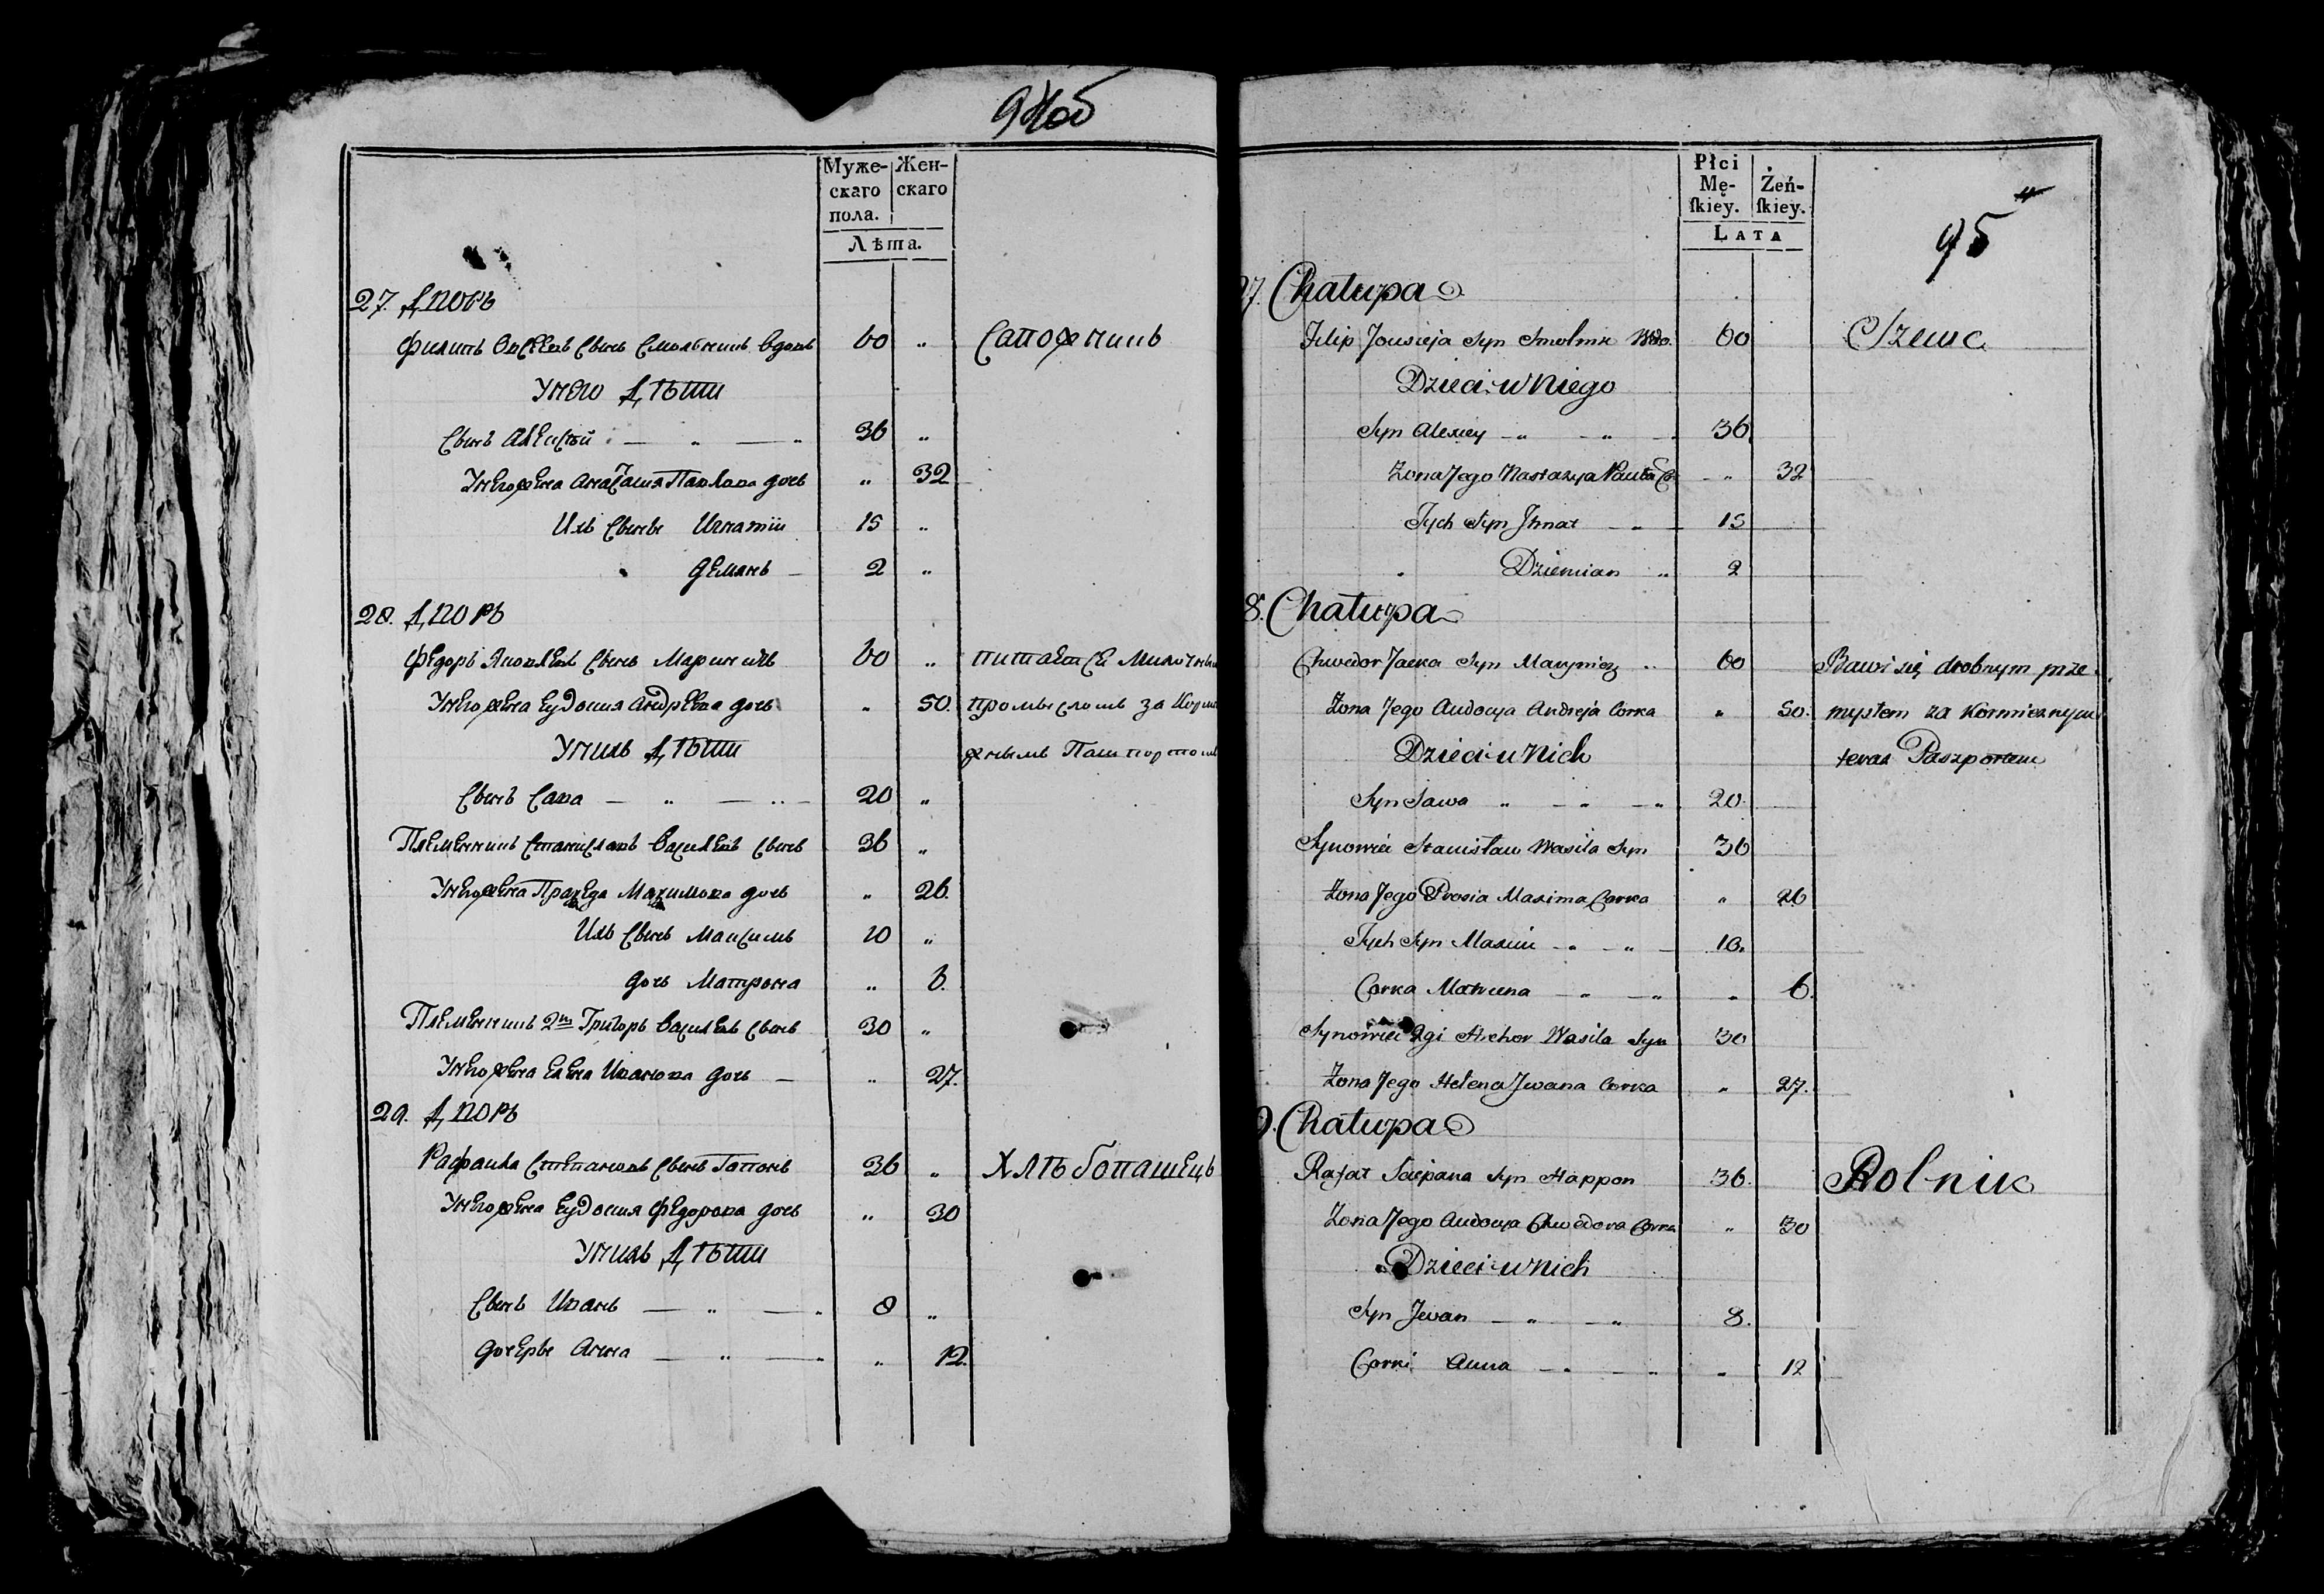 94об
Муже-
скаго
пола.
Жен-
скаго
Лѣта.
27. Дворъ
Филипъ Овсѣевъ Сынъ Смольникъ Вдовъ 60 „ Сапожникъ
У него Дѣти
Сынъ Алексѣй — „ — „ 36 „
У него жена Анастасия Павлова дочь „ 32
Ихъ Сыны Игнатiи 15 „
Демянъ — 2 „
28. Дворъ
Федоръ Яковлевъ Сынъ 60 „ питается
У него жена Еудокия Андреева дочь „ 50. промысломъ за
У нихъ Дѣти
Сынъ Сава — „ — „ 20 „
Племянникъ Станиславъ Василевъ Сынъ 36 „
У него жена Максимова дочь „ 26.
Ихъ Сынъ Максимъ 10 „
дочь Матрона „ 6.
Племянникъ 2й Григоръ Василевъ Сынъ 30 „
У него жена Елена Иванова дочь — „ 27.
29. Дворъ
Рафаила Степановъ Сынъ Гапонъ 36 „ Хлѣбопашецъ
У него жена Еудокия Федорова дочь „ 30
У нихъ Дѣти
Сынъ Иванъ — „ — „ 8 „
Дочеры Анна — „ — „ „ 12.
Płci
Mę-
ſkiey.
Żeń-
ſkiey.
Lata
95
7. Chałupa
Filip Jousieja Syn Smolnik Wdo. 60 Szewc
Dzieci u Niego
Syn Alexiey — „ — „ — 36
Żona Jego Nastazya Pawła C. — „ 32
Tych Syn Ihnat — „ — 15
„ Dziemian „ 2
8. Chałupa
Chwedor Jacka Syn 60 Bawi się drobnym prze-
Żona Jego Audocya Andreja Corka „ 50. mysłem za
Dzieci u Nich Paszportem
Syn Sawa „ — „ — „ 20.
Synowiec Stanisław Wasila Syn 36
Żona Jego Prosia Maxima Corka „ 26
Tych Syn Maxim — „ — „ — 10.
Corka — „ — „ „ 6.
Synowiec 2gi Hrehor Wasila Syn 30
Żona Jego Helena Jwana Corka „ 27.
9. Chałupa
Rafał Sciepana Syn Happon 36. Rolnik
Żona Jego Audocya Chwedora Corka „ 30
Dzieci u Nich
Syn Jwan — „ — „ 8.
Corki Anna — „ — „ „ 12